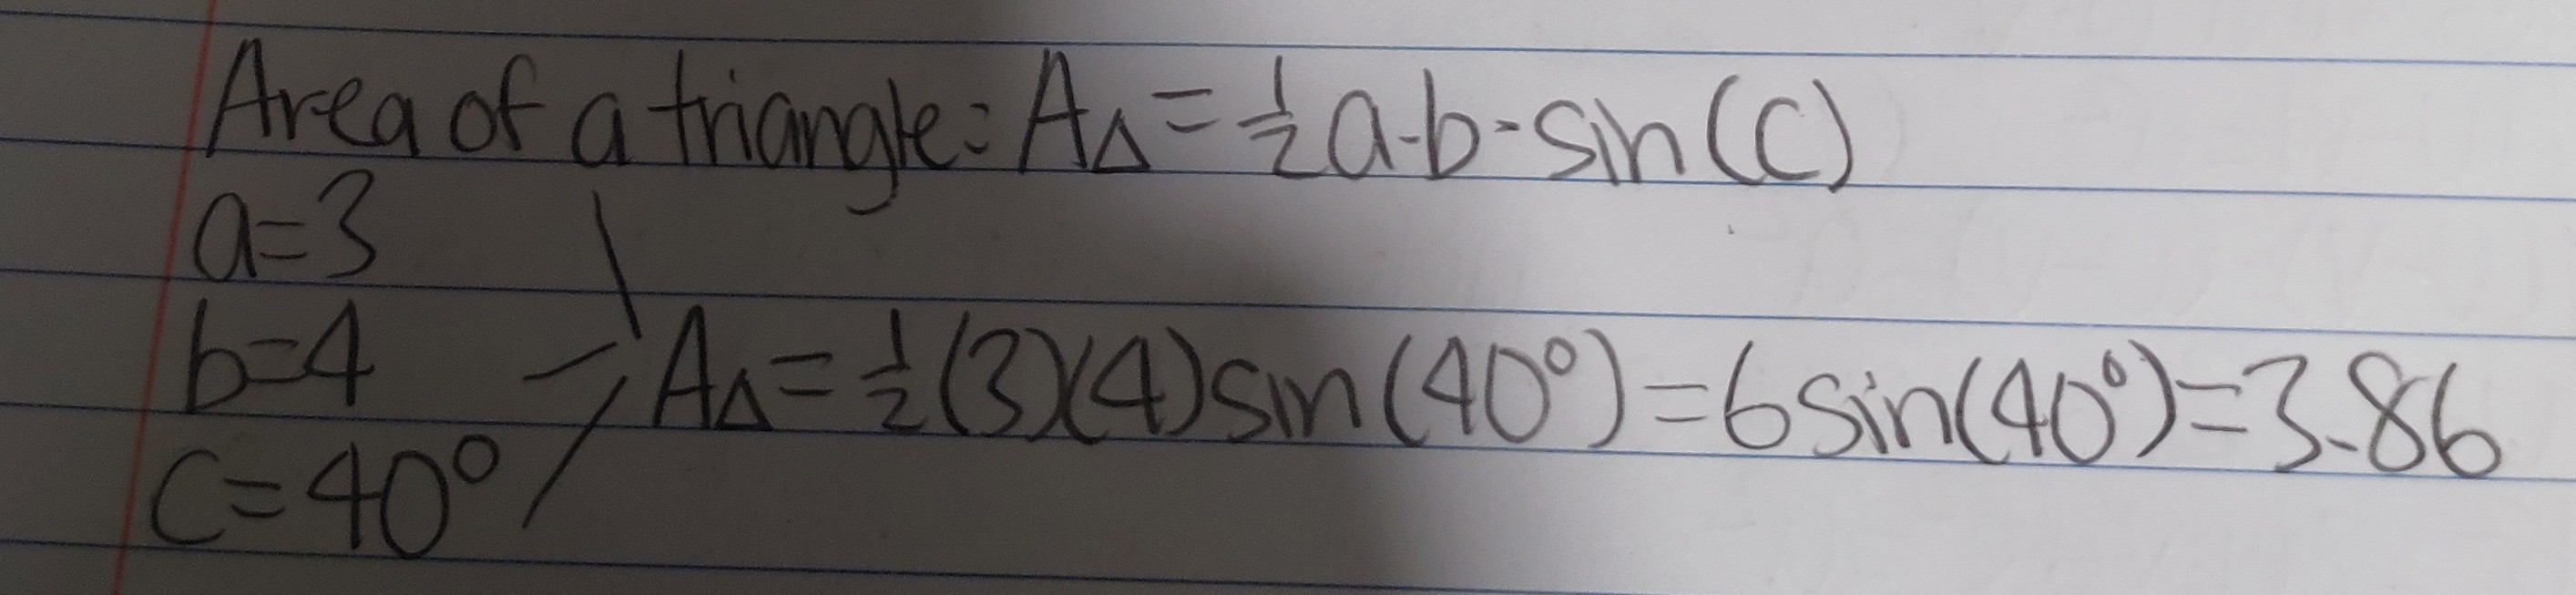 Area of a triangle: A△ = ½a·b·sin(C)
a=3
b=4
A△ = ½(3)(4)sin(40°) = 6sin(40°) = 3.86
C=40°